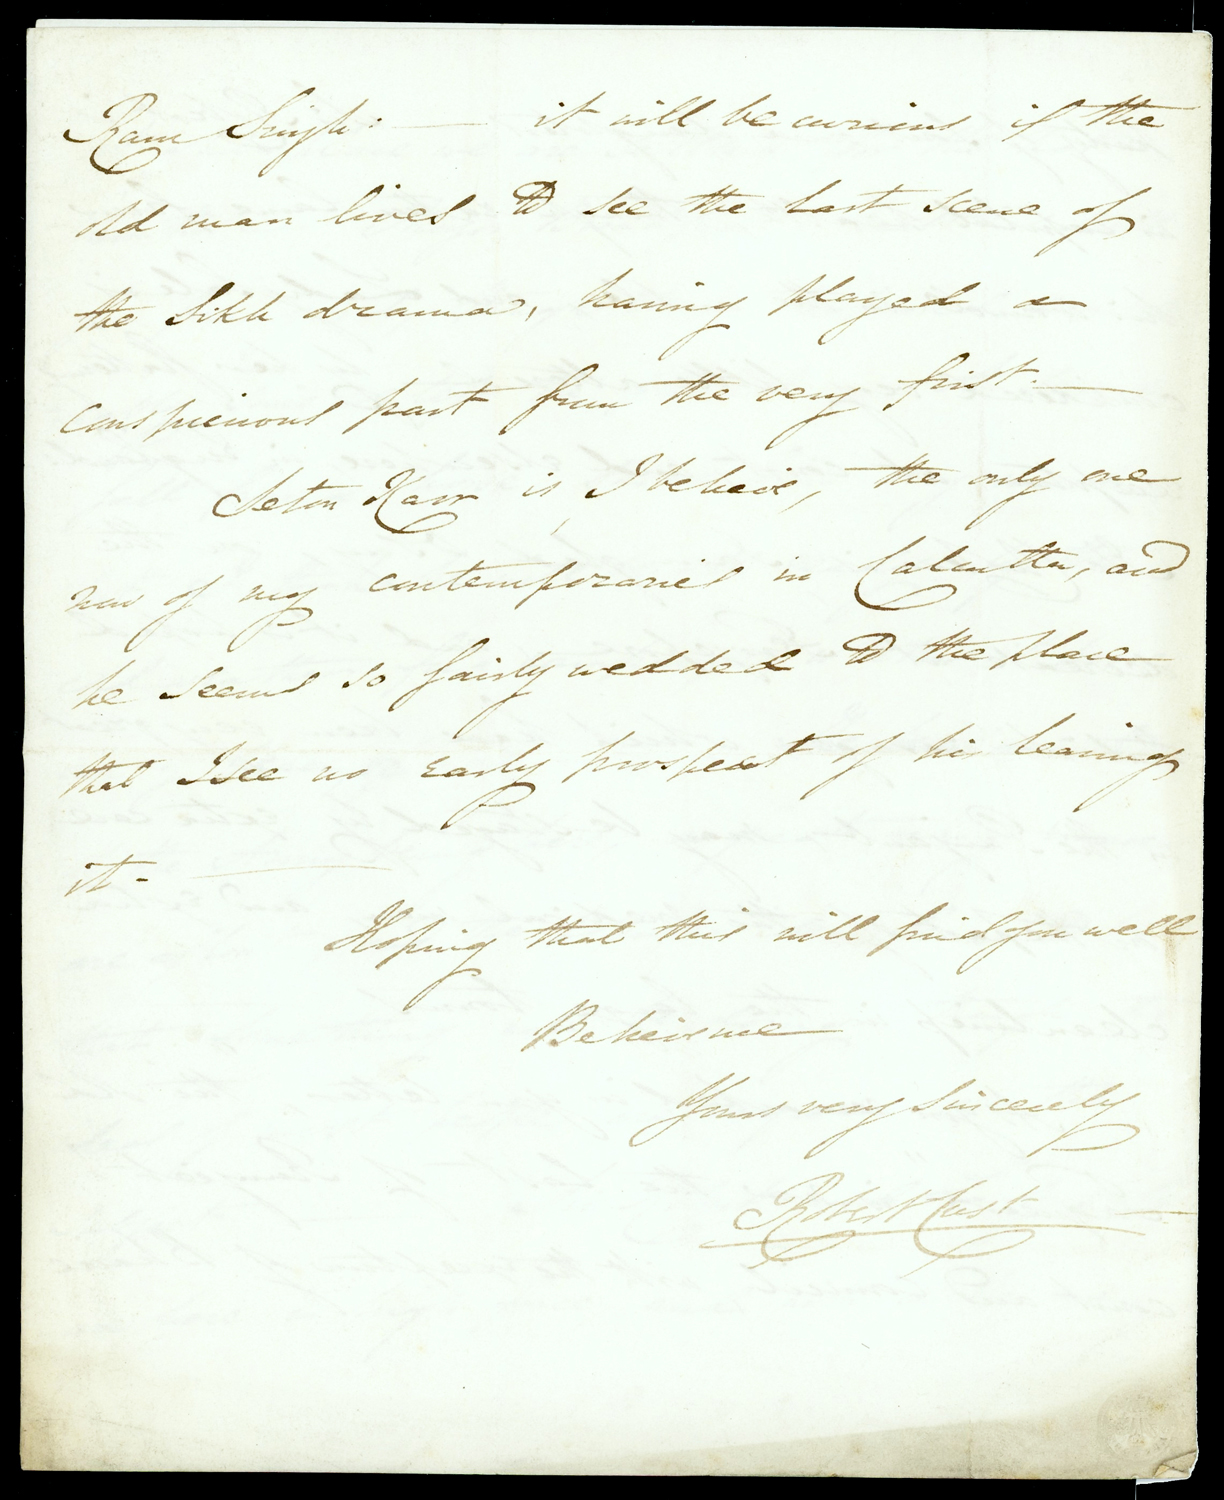 Ram Singh: — it will be curious if the
old man lives to see the last scene of
the Sikh drama, having played a
conspicuous part from the very first. —
Seton Karr is, I believe, the only one
now of my contemporaries in Calcutta, and
he seems so fairly wedded to the place
that I see no early prospect of his leaving
it. —
Hoping that this will find you well
Believe me
Yours very sincerely
Robert Cust —